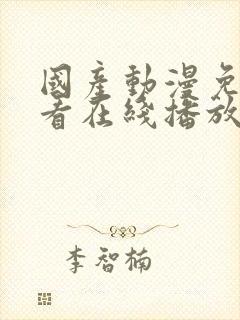 國產動漫免
看在綫播放
李智楠